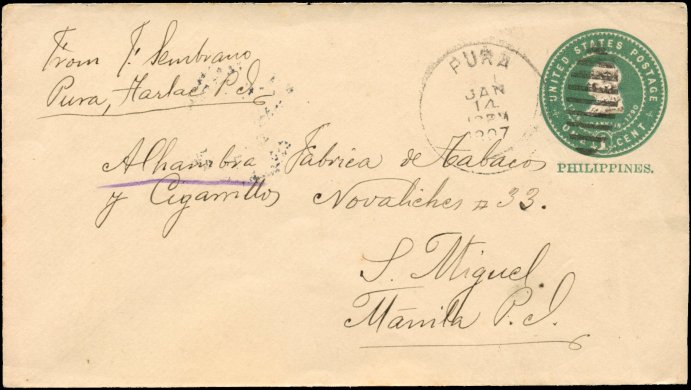 From J. Sembrano
Pura, Tarlac P. I.
PURA
JAN
14
1907
UNITED STATES POSTAGE
ONE CENT
PHILIPPINES.
Alhambra Fabrica de Tabacos
y Cigarrillos Novaliches n 33.
S. Miguel
Manila P. I.